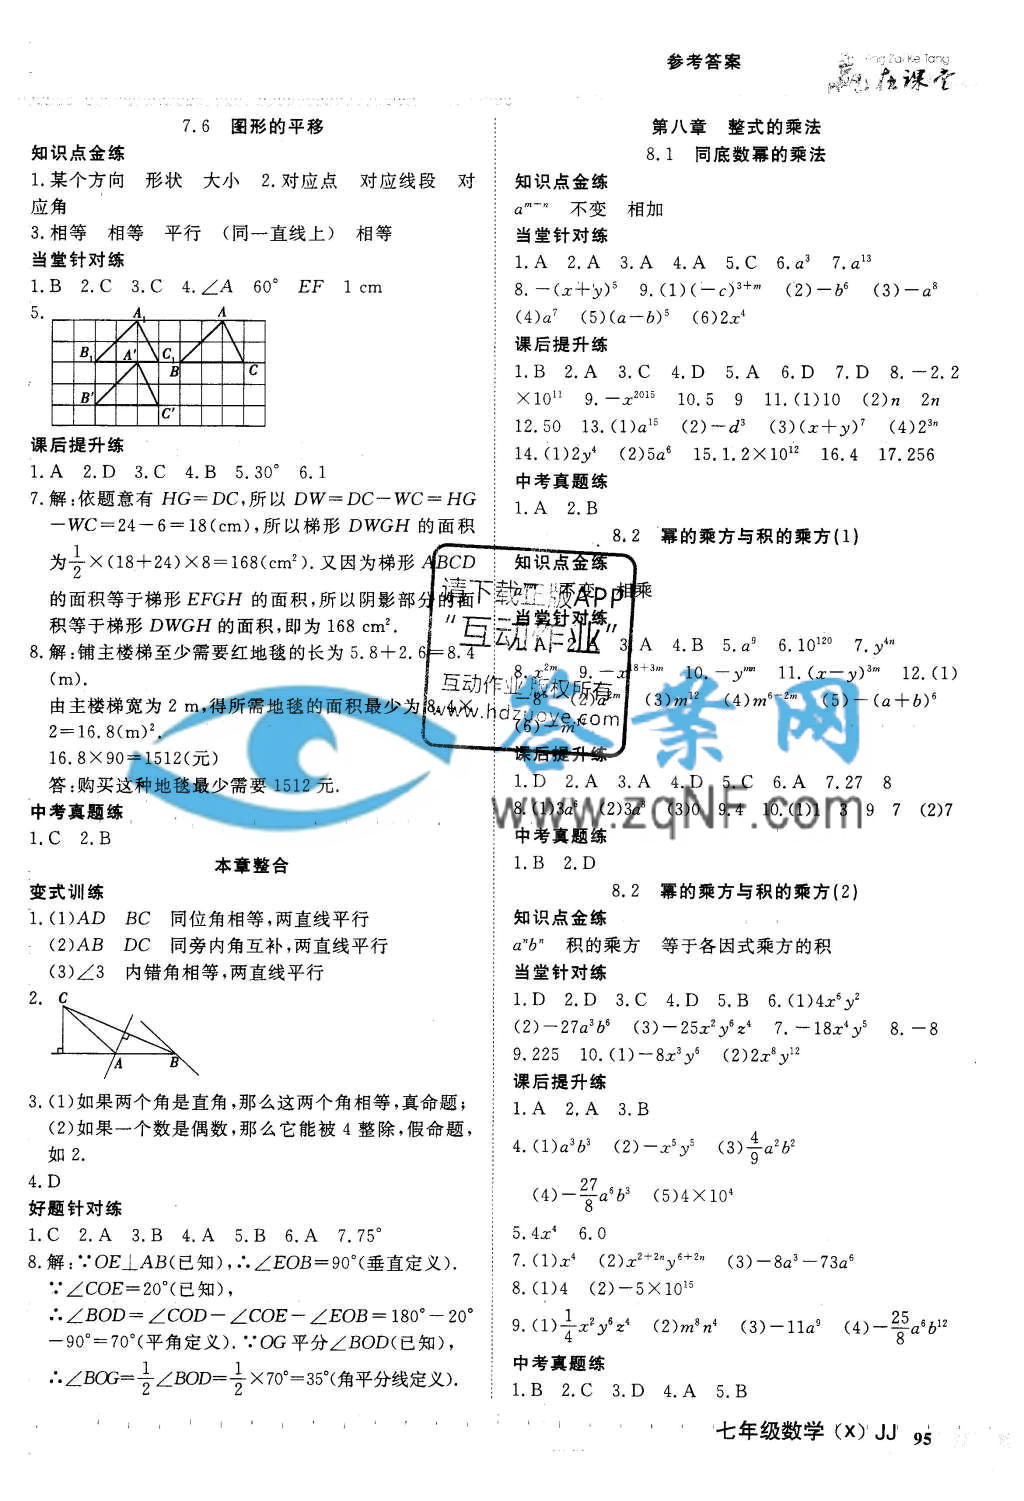 参考答案
Zai Ke Tang
赢在课堂
7.6 图形的平移
知识点金练
1.某个方向 形状 大小 2.对应点 对应线段 对
应角
3.相等 相等 平行 (同一直线上) 相等
当堂针对练
1.B 2.C 3.C 4.∠A 60° EF 1 cm
5.
A₁ A
B₁ A′ C₁ B C
B′ C′
课后提升练
1.A 2.D 3.C 4.B 5.30° 6.1
7.解:依题意有 HG=DC,所以 DW=DC-WC=HG
-WC=24-6=18(cm),所以梯形 DWGH 的面积
为1/2×(18+24)×8=168(cm²).又因为梯形 ABCD
的面积等于梯形 EFGH 的面积,所以阴影部分的面
积等于梯形 DWGH 的面积,即为 168 cm².
8.解:铺主楼梯至少需要红地毯的长为 5.8+2.6=8.4
(m).
由主楼梯宽为 2 m,得所需地毯的面积最少为 8.4×
2=16.8(m)².
16.8×90=1512(元)
答:购买这种地毯最少需要 1512 元.
中考真题练
1.C 2.B
本章整合
变式训练
1.(1)AD BC 同位角相等,两直线平行
(2)AB DC 同旁内角互补,两直线平行
(3)∠3 内错角相等,两直线平行
2.
C
A B
3.(1)如果两个角是直角,那么这两个角相等,真命题;
(2)如果一个数是偶数,那么它能被 4 整除,假命题,
如 2.
4.D
好题针对练
1.C 2.A 3.B 4.A 5.B 6.A 7.75°
8.解:∵OE⊥AB(已知),∴∠EOB=90°(垂直定义).
∵∠COE=20°(已知),
∴∠BOD=∠COD-∠COE-∠EOB=180°-20°
-90°=70°(平角定义).∵OG 平分∠BOD(已知),
∴∠BOG=1/2∠BOD=1/2×70°=35°(角平分线定义).
第八章 整式的乘法
8.1 同底数幂的乘法
知识点金练
aᵐ⁻ⁿ 不变 相加
当堂针对练
1.A 2.A 3.A 4.A 5.C 6.a³ 7.a¹³
8.-(x+y)⁵ 9.(1)(-c)³⁺ᵐ (2)-b⁶ (3)-a⁸
(4)a⁷ (5)(a-b)⁵ (6)2x⁴
课后提升练
1.B 2.A 3.C 4.D 5.A 6.D 7.D 8.-2.2
×10¹¹ 9.-x²⁰¹⁵ 10.5 9 11.(1)10 (2)n 2n
12.50 13.(1)a¹⁵ (2)-d³ (3)(x+y)⁷ (4)2³ⁿ
14.(1)2y⁴ (2)5a⁶ 15.1.2×10¹² 16.4 17.256
中考真题练
1.A 2.B
8.2 幂的乘方与积的乘方(1)
知识点金练
不变 相乘
当堂针对练
1.A 2.A 3.A 4.B 5.a⁹ 6.10¹²⁰ 7.y⁴ⁿ
8.x²ᵐ 9.-x¹⁸⁺³ᵐ 10.-yᵐⁿ 11.(x-y)³ᵐ 12.(1)
-8⁸ (2)a²ᵐ (3)m¹² (4)m⁶⁻²ᵐ (5)-(a+b)⁶
(6)-m
课后提升练
1.D 2.A 3.A 4.D 5.C 6.A 7.27 8
8.(1)3a⁶ (2)3a⁶ (3)0 9.4 10.(1)1 3 9 7 (2)7
中考真题练
1.B 2.D
8.2 幂的乘方与积的乘方(2)
知识点金练
aⁿbⁿ 积的乘方 等于各因式乘方的积
当堂针对练
1.D 2.D 3.C 4.D 5.B 6.(1)4x⁶y²
(2)-27a³b⁶ (3)-25x²y⁶z⁴ 7.-18x⁴y⁵ 8.-8
9.225 10.(1)-8x³y⁶ (2)2x⁸y¹²
课后提升练
1.A 2.A 3.B
4.(1)a³b³ (2)-x⁵y⁵ (3)4/9a²b²
(4)-27/8a⁶b³ (5)4×10⁴
5.4x⁴ 6.0
7.(1)x⁴ (2)x²⁺²ⁿy⁶⁺²ⁿ (3)-8a³-73a⁶
8.(1)4 (2)-5×10¹⁵
9.(1)1/4x²y⁶z⁴ (2)m⁸n⁴ (3)-11a⁹ (4)-25/8a⁶b¹²
中考真题练
1.B 2.C 3.D 4.A 5.B
请下载正版APP
“互动作业”
互动作业 版权所有
www.hdzuoye.com
答案网
www.zqNF.com
七年级数学(X) JJ 95